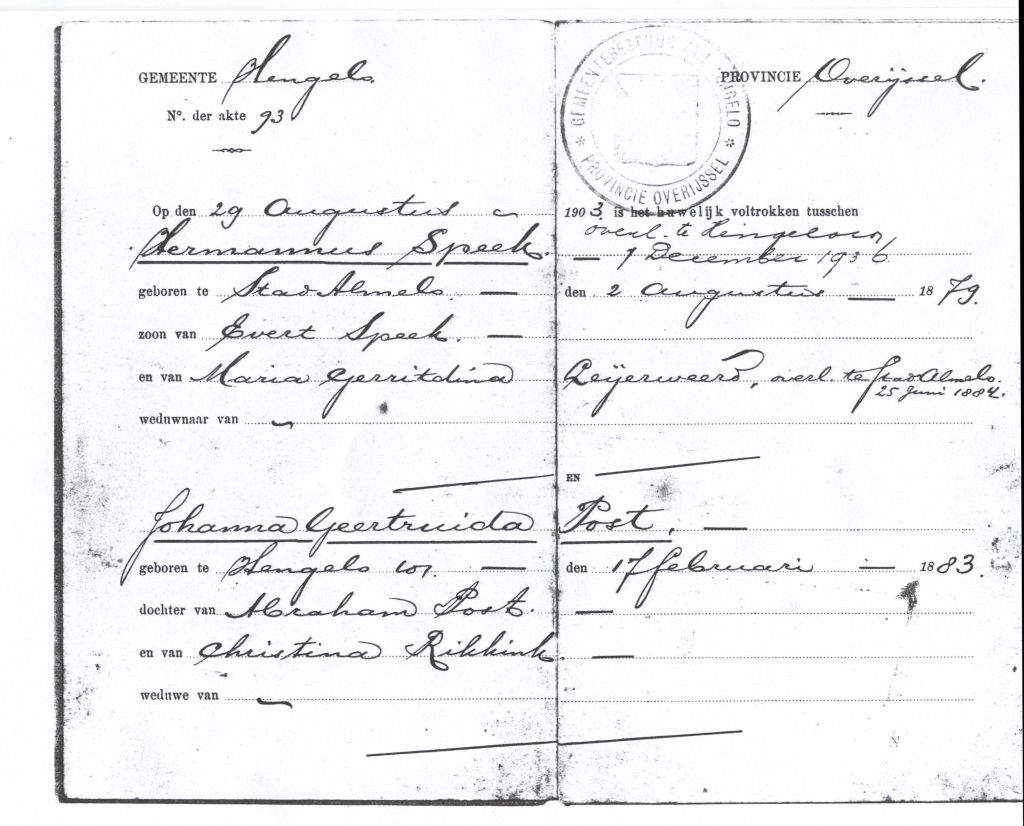 GEMEENTE Hengelo. PROVINCIE Overijssel.
GEMEENTEBESTUUR VAN HENGELO * PROVINCIE OVERIJSSEL *
Nº. der akte 93
Op den 29 Augustus 1903. is het huwelijk voltrokken tusschen
overl. te Hengelo(o)
Hermannus Speek. — 1 December 1936.
geboren te Stad Almelo. — den 2 Augustus — 1879.
zoon van Evert Speek. —
en van Maria Gerritdina Leijerweerd, overl. te Stad Almelo.
25 Juni 1884.
weduwnaar van
EN
Johanna Geertruida Post. —
geboren te Hengelo (o). — den 17 februari — 1883.
dochter van Abraham Post. —
en van Christina Rikkink. —
weduwe van